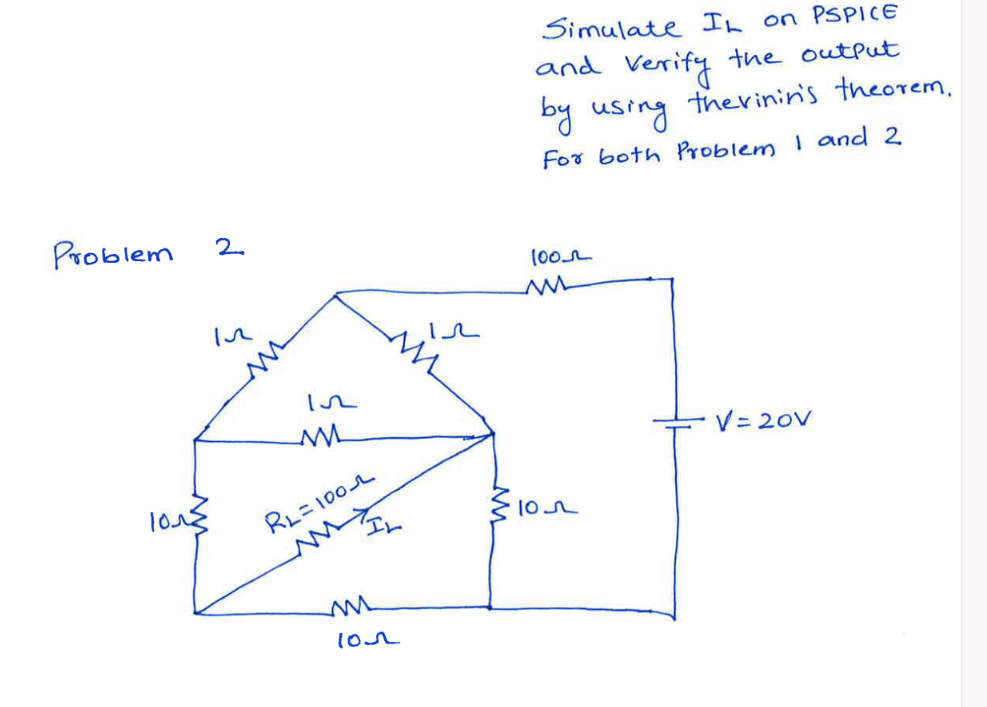 Simulate IL on PSPICE
and Verify the output
by using thevinin's theorem.
For both Problem 1 and 2
Problem 2
100Ω
1Ω
1Ω
1Ω
V=20V
10Ω
RL=100Ω
IL
10Ω
10Ω